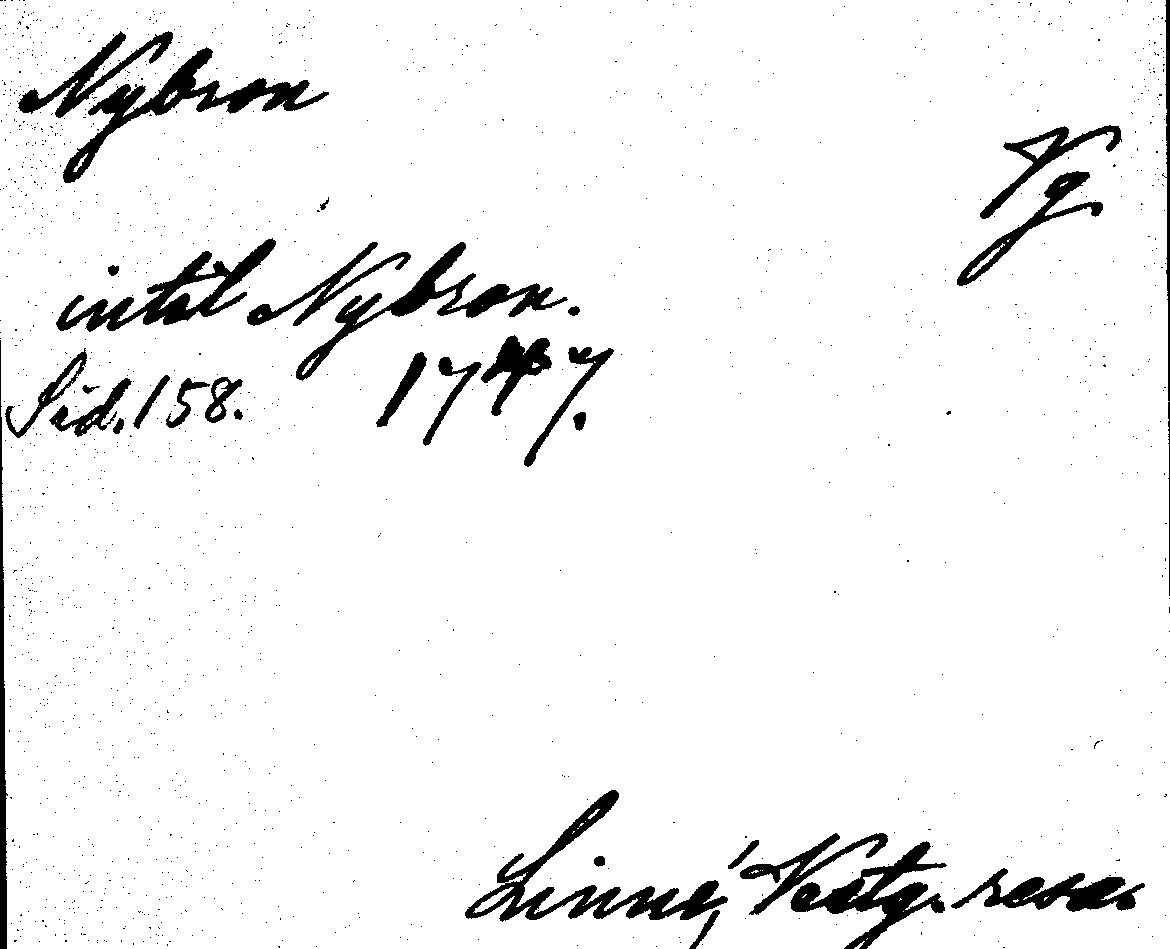 Nybron
Vg.
intil Nybron.
Sid. 158. 1747.
Linné, Vestg. resa.